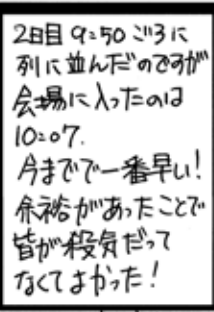 2日目 9:50 ごろに
列に並んだのですが
会場に入ったのは
10:07.
今までで一番早い!
余裕があったことで
皆が殺気だって
なくてよかった!